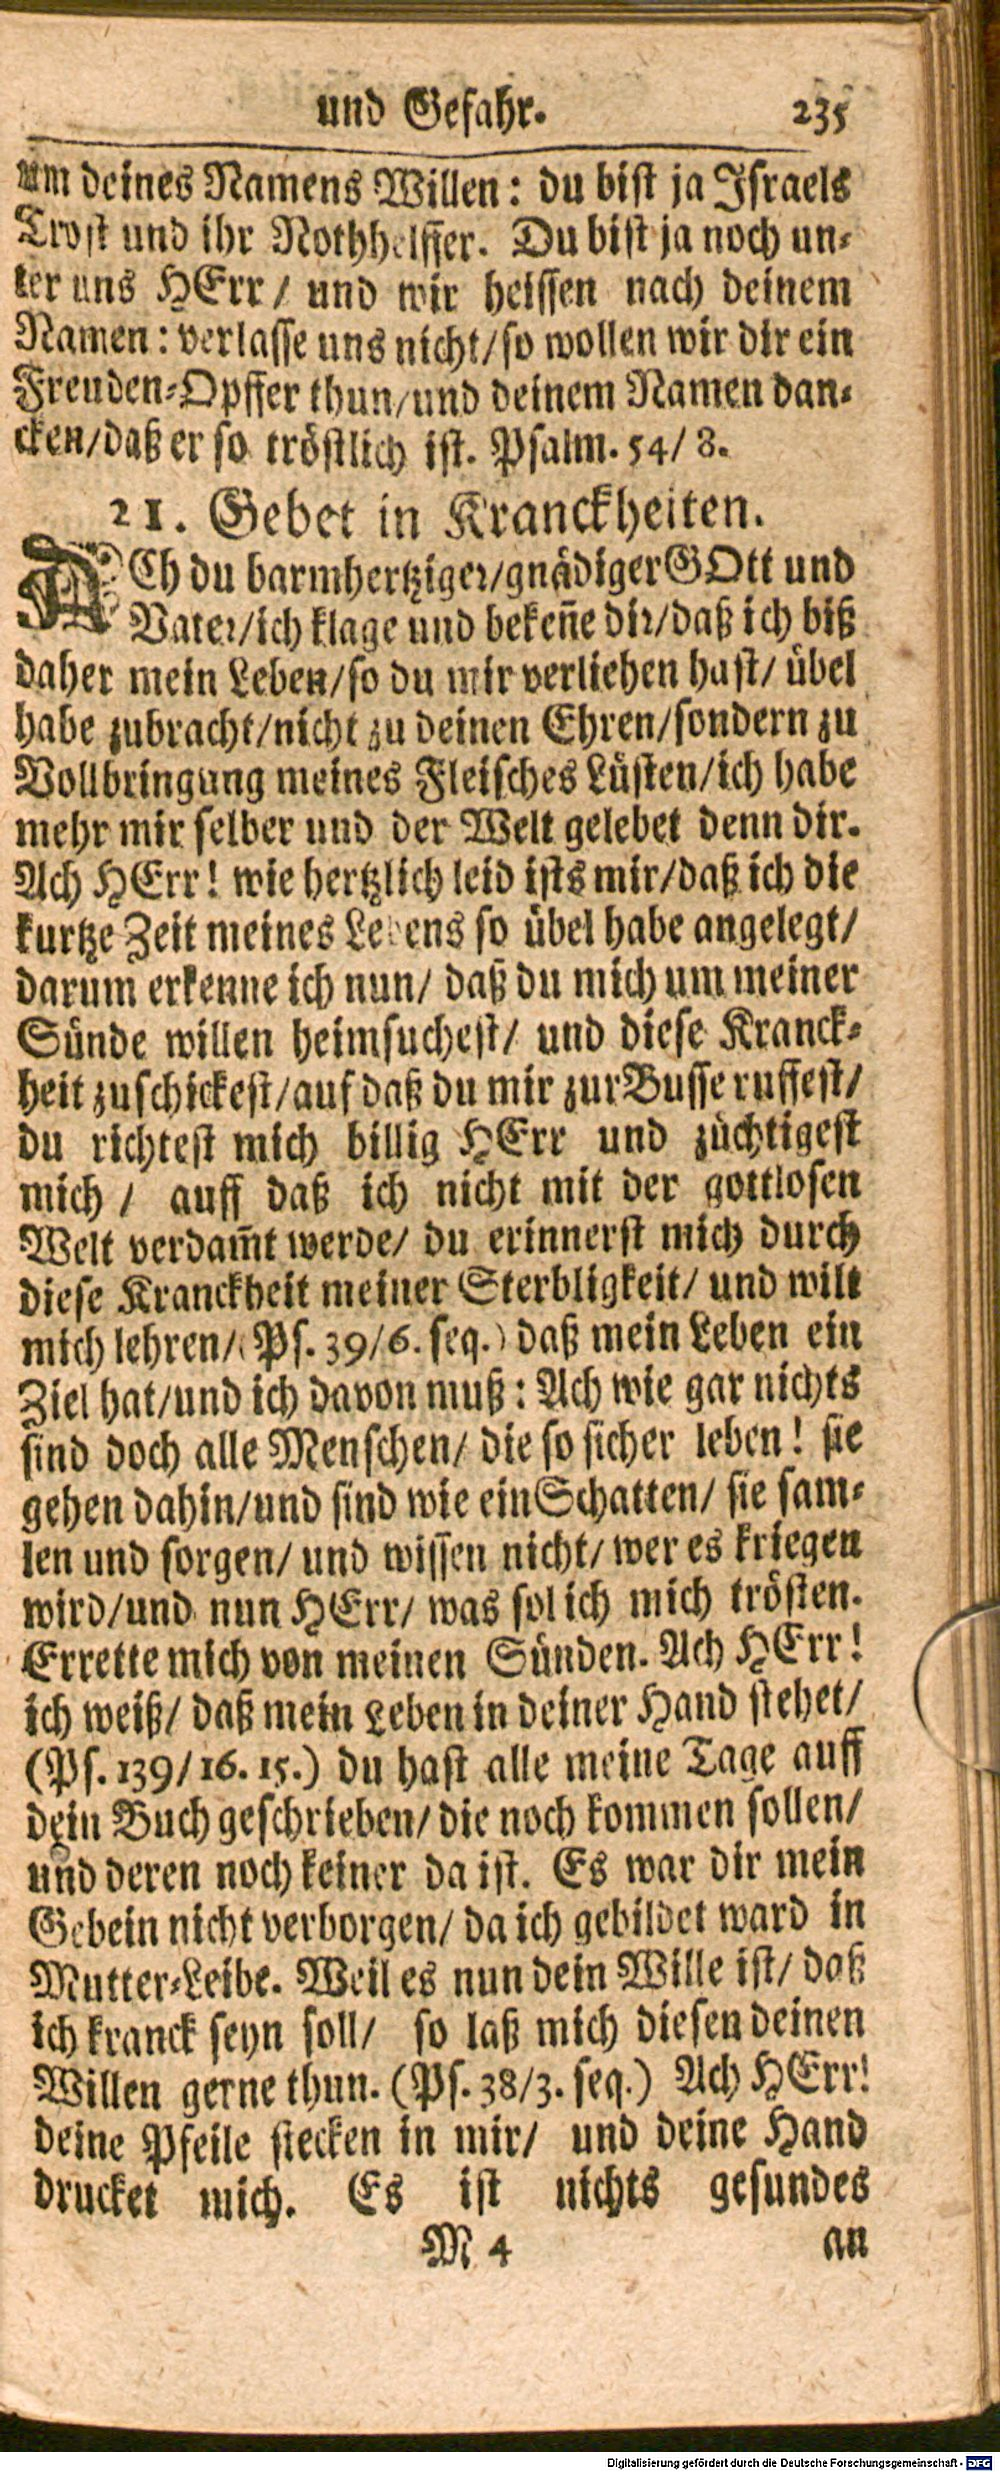 und Gefahr. 235
um deines Namens Willen: du bist ja Israels
Trost und ihr Nothhelffer. Du bist ja noch un-
ter uns HErr / und wir heissen nach deinem
Namen: verlasse uns nicht/so wollen wir dir ein
Freuden-Opffer thun/und deinem Namen dan-
cken/daß er so tröstlich ist. Psalm. 54/ 8.
21. Gebet in Kranckheiten.
ACh du barmhertziger/gnädiger GOtt und
Vater/ich klage und bekeñe dir/daß ich biß
daher mein Leben/so du mir verliehen hast/ übel
habe zubracht/nicht zu deinen Ehren/sondern zu
Vollbringung meines Fleisches Lüsten/ich habe
mehr mir selber und der Welt gelebet denn dir.
Ach HErr! wie hertzlich leid ists mir/daß ich die
kurtze Zeit meines Lebens so übel habe angelegt/
darum erkenne ich nun/ daß du mich um meiner
Sünde willen heimsuchest/ und diese Kranck-
heit zuschickest/auf daß du mir zur Busse ruffest/
du richtest mich billig HErr und züchtigest
mich / auff daß ich nicht mit der gottlosen
Welt verdam̃t werde/ du erinnerst mich durch
diese Kranckheit meiner Sterbligkeit/ und wilt
mich lehren/(Ps. 39/6. seq.) daß mein Leben ein
Ziel hat/und ich davon muß: Ach wie gar nichts
sind doch alle Menschen/ die so sicher leben! sie
gehen dahin/und sind wie ein Schatten/ sie sam-
len und sorgen/ und wissen nicht/ wer es kriegen
wird/und nun HErr/ was sol ich mich trösten.
Errette mich von meinen Sünden. Ach HErr!
ich weiß/ daß mein Leben in deiner Hand stehet/
(Ps. 139/16. 15.) du hast alle meine Tage auff
dein Buch geschrieben/ die noch kommen sollen/
und deren noch keiner da ist. Es war dir mein
Gebein nicht verborgen/ da ich gebildet ward in
Mutter-Leibe. Weil es nun dein Wille ist/ daß
ich kranck seyn soll/ so laß mich diesen deinen
Willen gerne thun. (Ps. 38/3. seq.) Ach HErr!
deine Pfeile stecken in mir/ und deine Hand
drucket mich. Es ist nichts gesundes
M 4 an
Digitalisierung gefördert durch die Deutsche Forschungsgemeinschaft - DFG